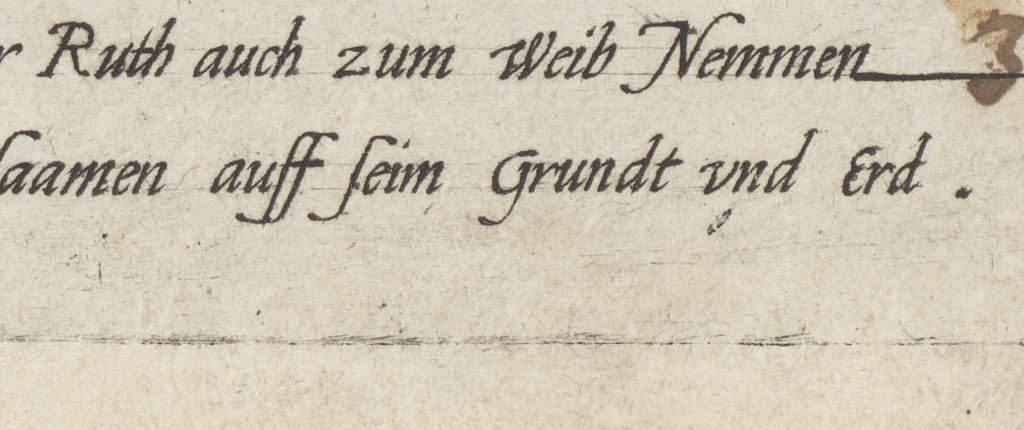 r Ruth auch zum Weib Nemmen 3
saamen auff seim Grundt vnd Erd .